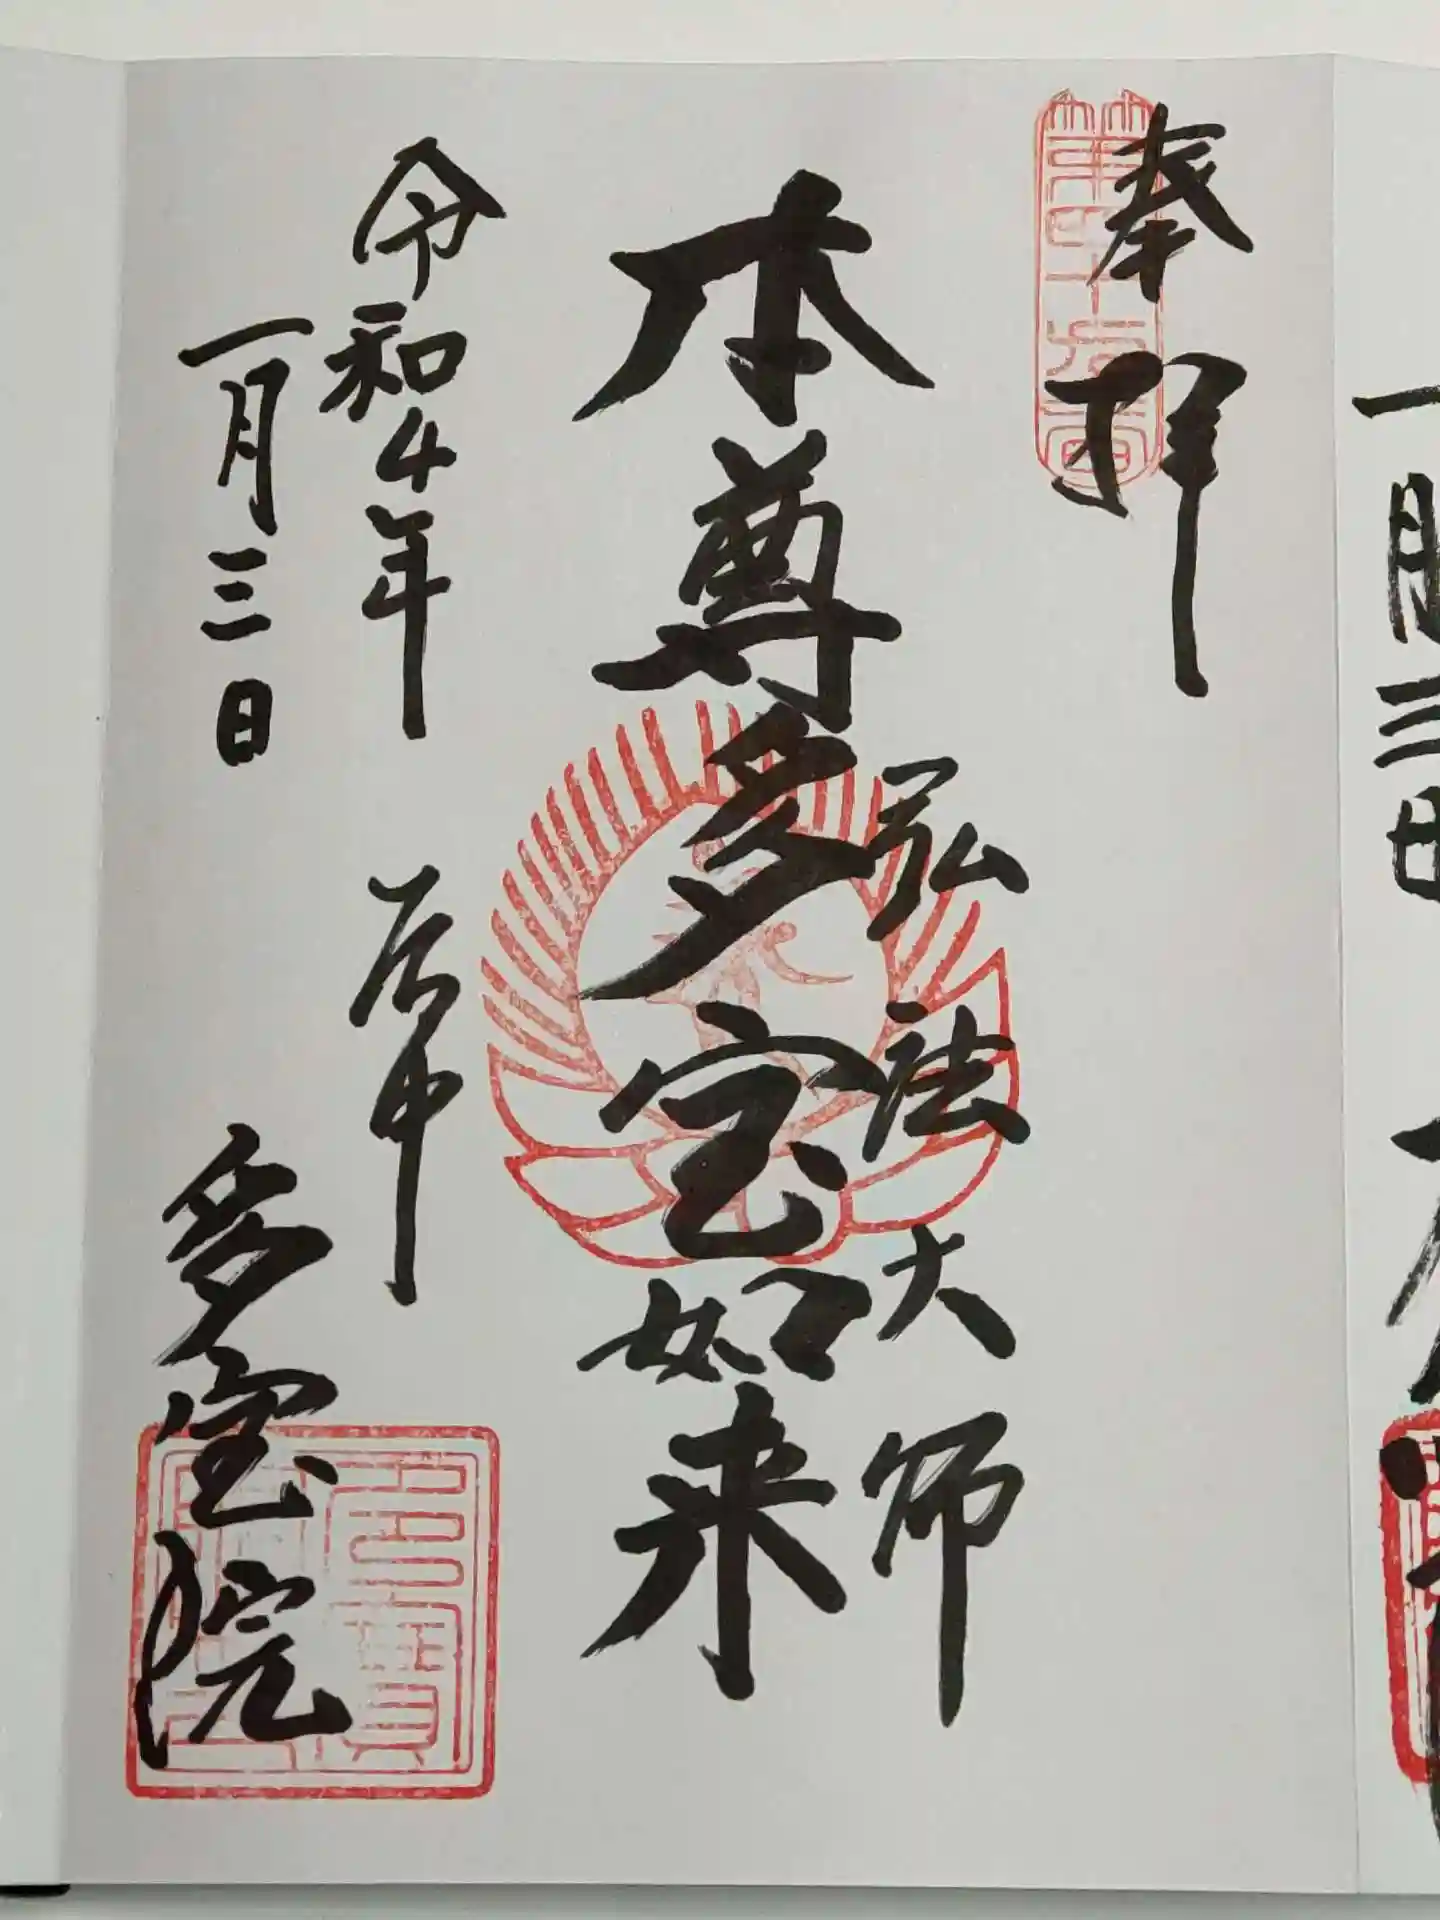 一月三日
奉拝
第四十九番
弘法大師
本尊多宝如来
令和4年
一月三日
谷中
多宝院